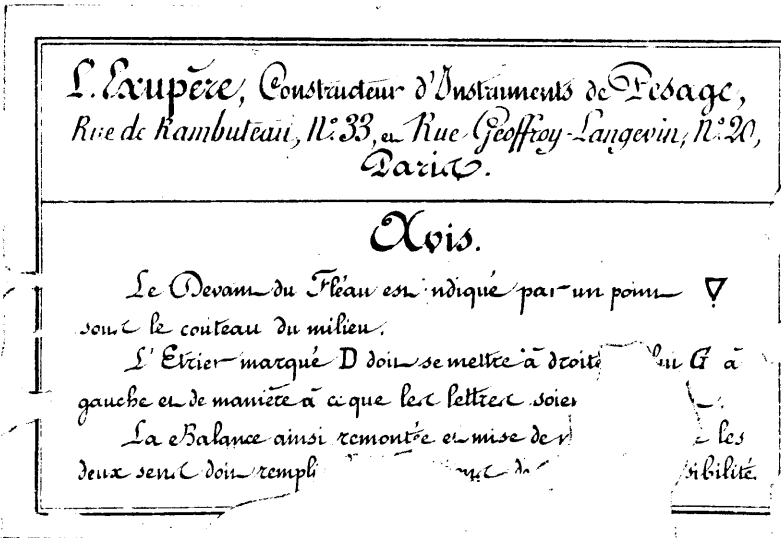 L. Exupère, Constructeur d'Instruments de Pesage,
Rue de Rambuteau, N.º 33, et Rue Geoffroy-Langevin, N.º 20,
Paris.
Avis.
Le Devant du Fléau est indiqué par un point
sous le couteau du milieu.
L'Etrier marqué D doit se mettre à droite G à
gauche et de manière à ce que les lettres
La Balance ainsi remontée et mise de les
deux sens doit